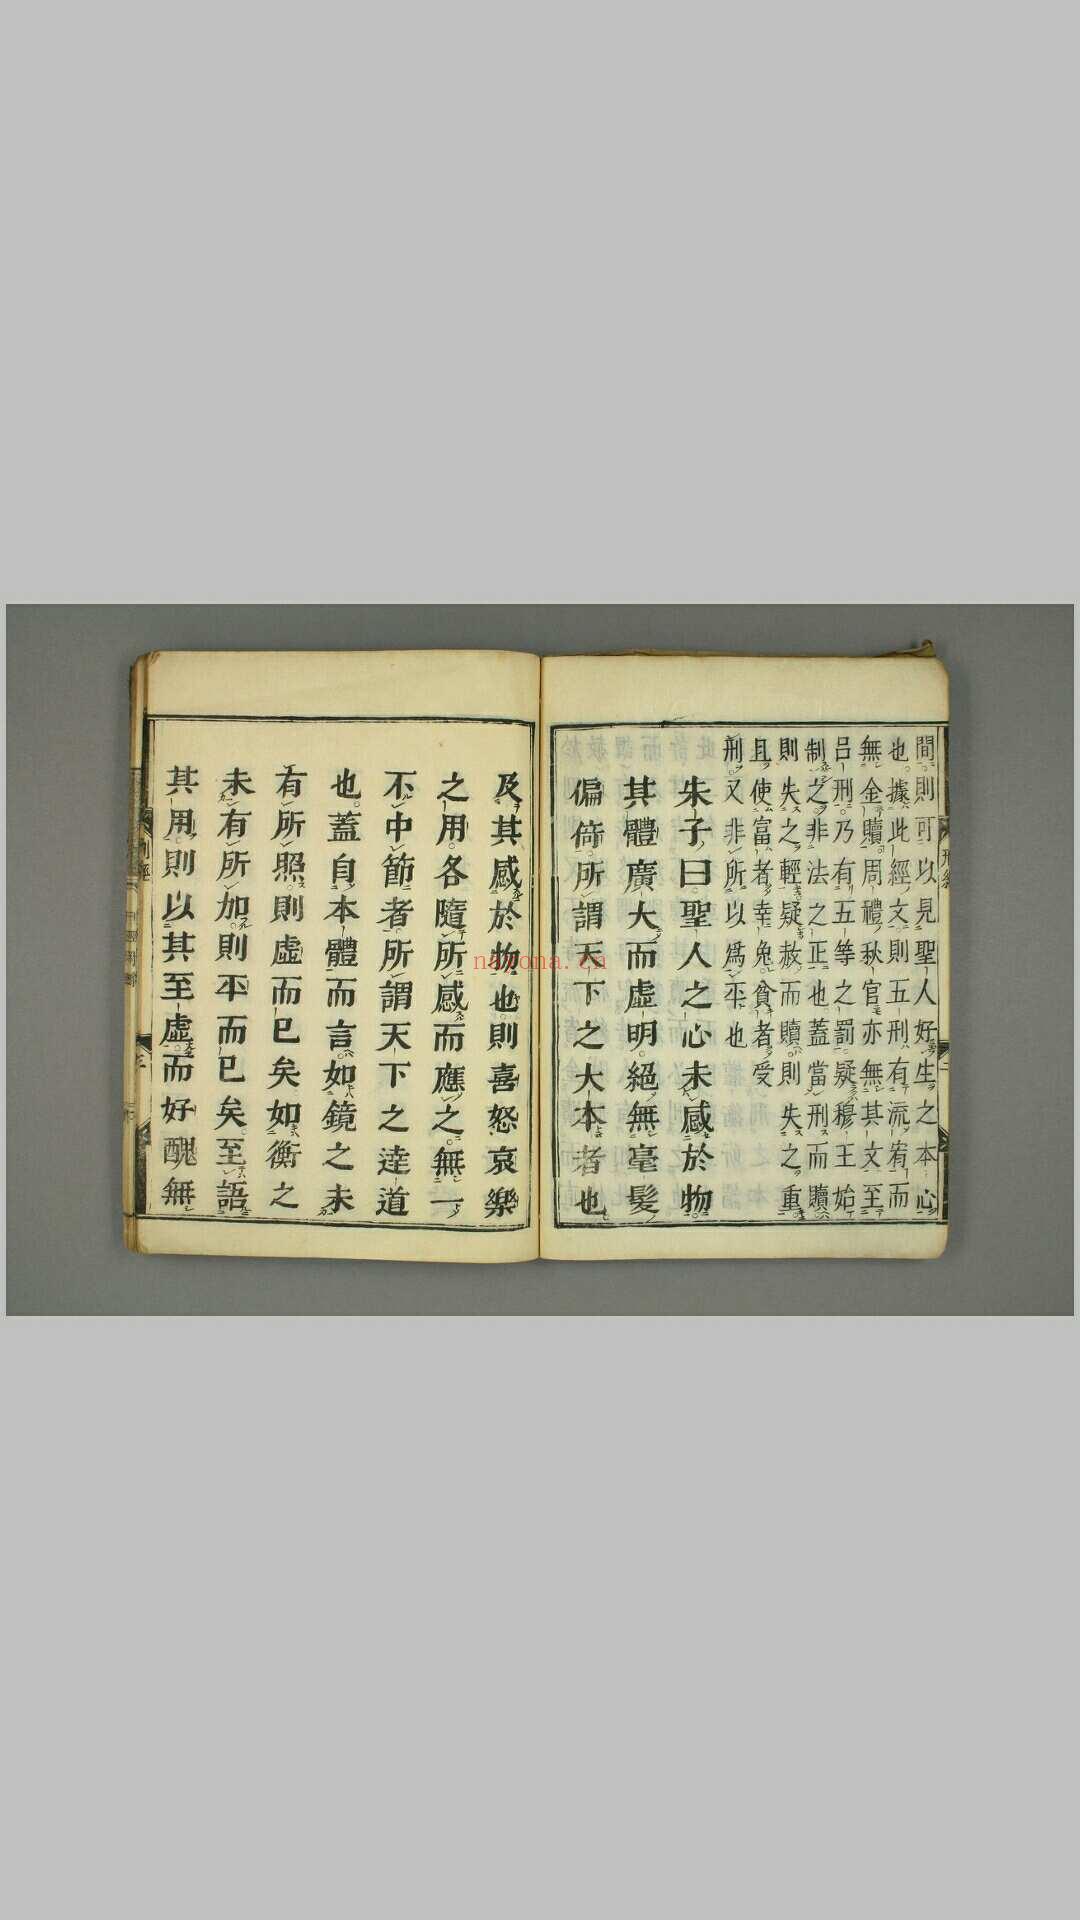 間則可以見聖人好生之本心
也據此經文則五刑有流宥而
無金贖周禮秋官亦無其文至
呂刑乃有五等之罰疑穆王始
制之非法之正也蓋當刑而贖
則失之輕疑赦而贖則失之重
且使富者幸免貧者受
刑又非所以爲平也
朱子曰聖人之心未感於物
其體廣大而虛明絕無毫髮
偏倚所謂天下之大本者也
及其感於物也則喜怒哀樂
之用各隨所感而應之無一
不中節者所謂天下之達道
也蓋自本體而言如鏡之未
有所照則虛而已矣如衡之
未有所加則平而已矣至語
其用則以其至虛而好醜無
navona.cn